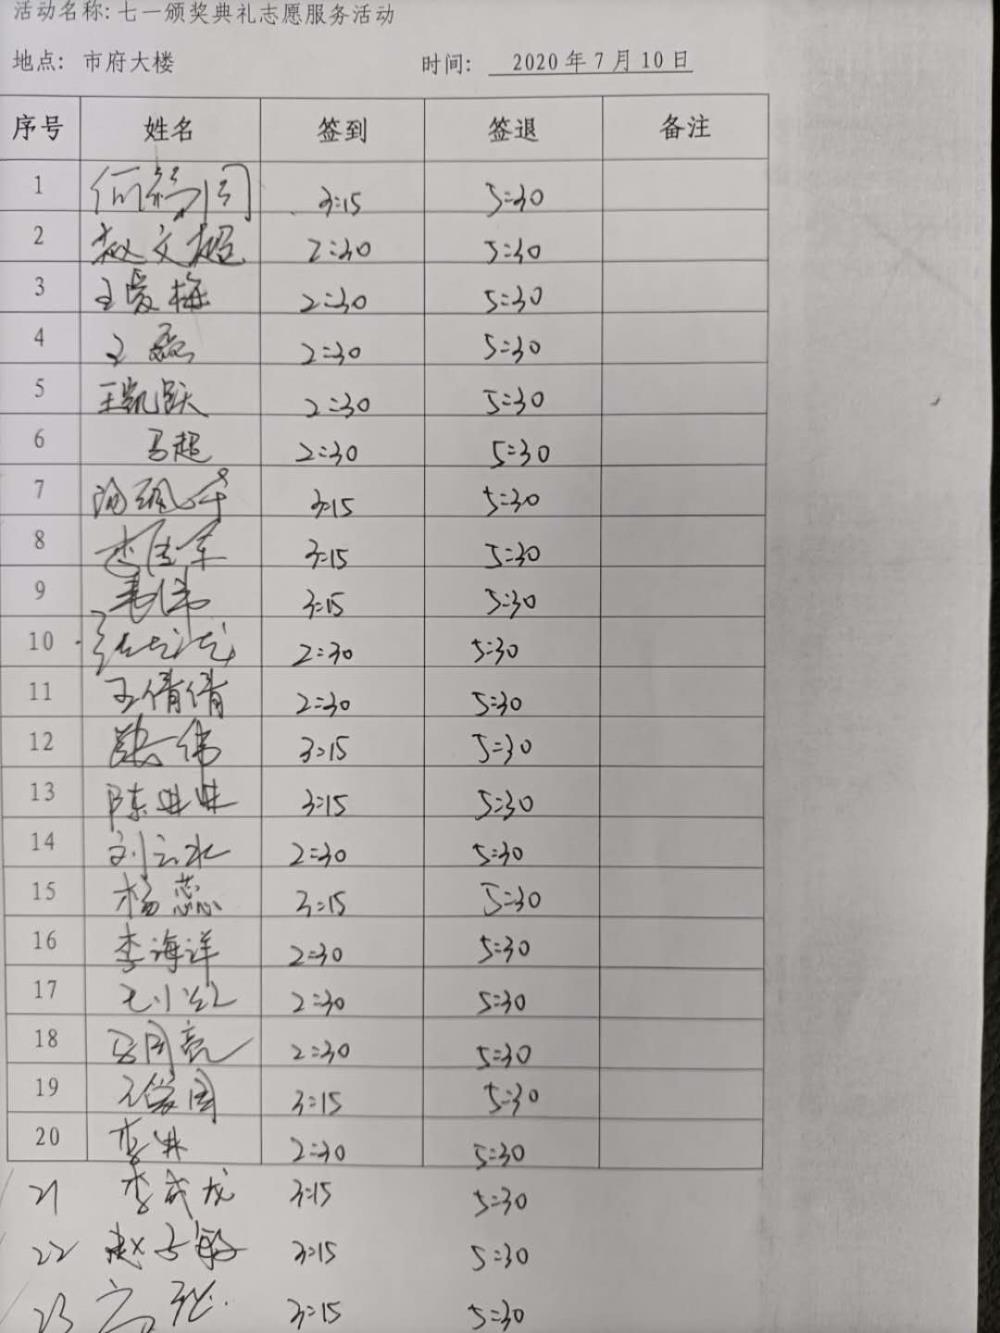 活动名称:七一颁奖典礼志愿服务活动
地点: 市府大楼 时间: 2020年7月10日
序号 姓名 签到 签退 备注
1 3:15 5:30
2 赵文超 2:30 5:30
3 王爱梅 2:30 5:30
4 王磊 2:30 5:30
5 王凯跃 2:30 5:30
6 马超 2:30 5:30
7 3:15 5:30
8 3:15 5:30
9 3:15 5:30
10 2:30 5:30
11 王倩倩 2:30 5:30
12 3:15 5:30
13 陈 3:15 5:30
14 刘云水 2:30 5:30
15 杨蕊 3:15 5:30
16 李海洋 2:30 5:30
17 2:30 5:30
18 2:30 5:30
19 3:15 5:30
20 李 2:30 5:30
21 李成龙 3:15 5:30
22 赵 3:15 5:30
23 3:15 5:30